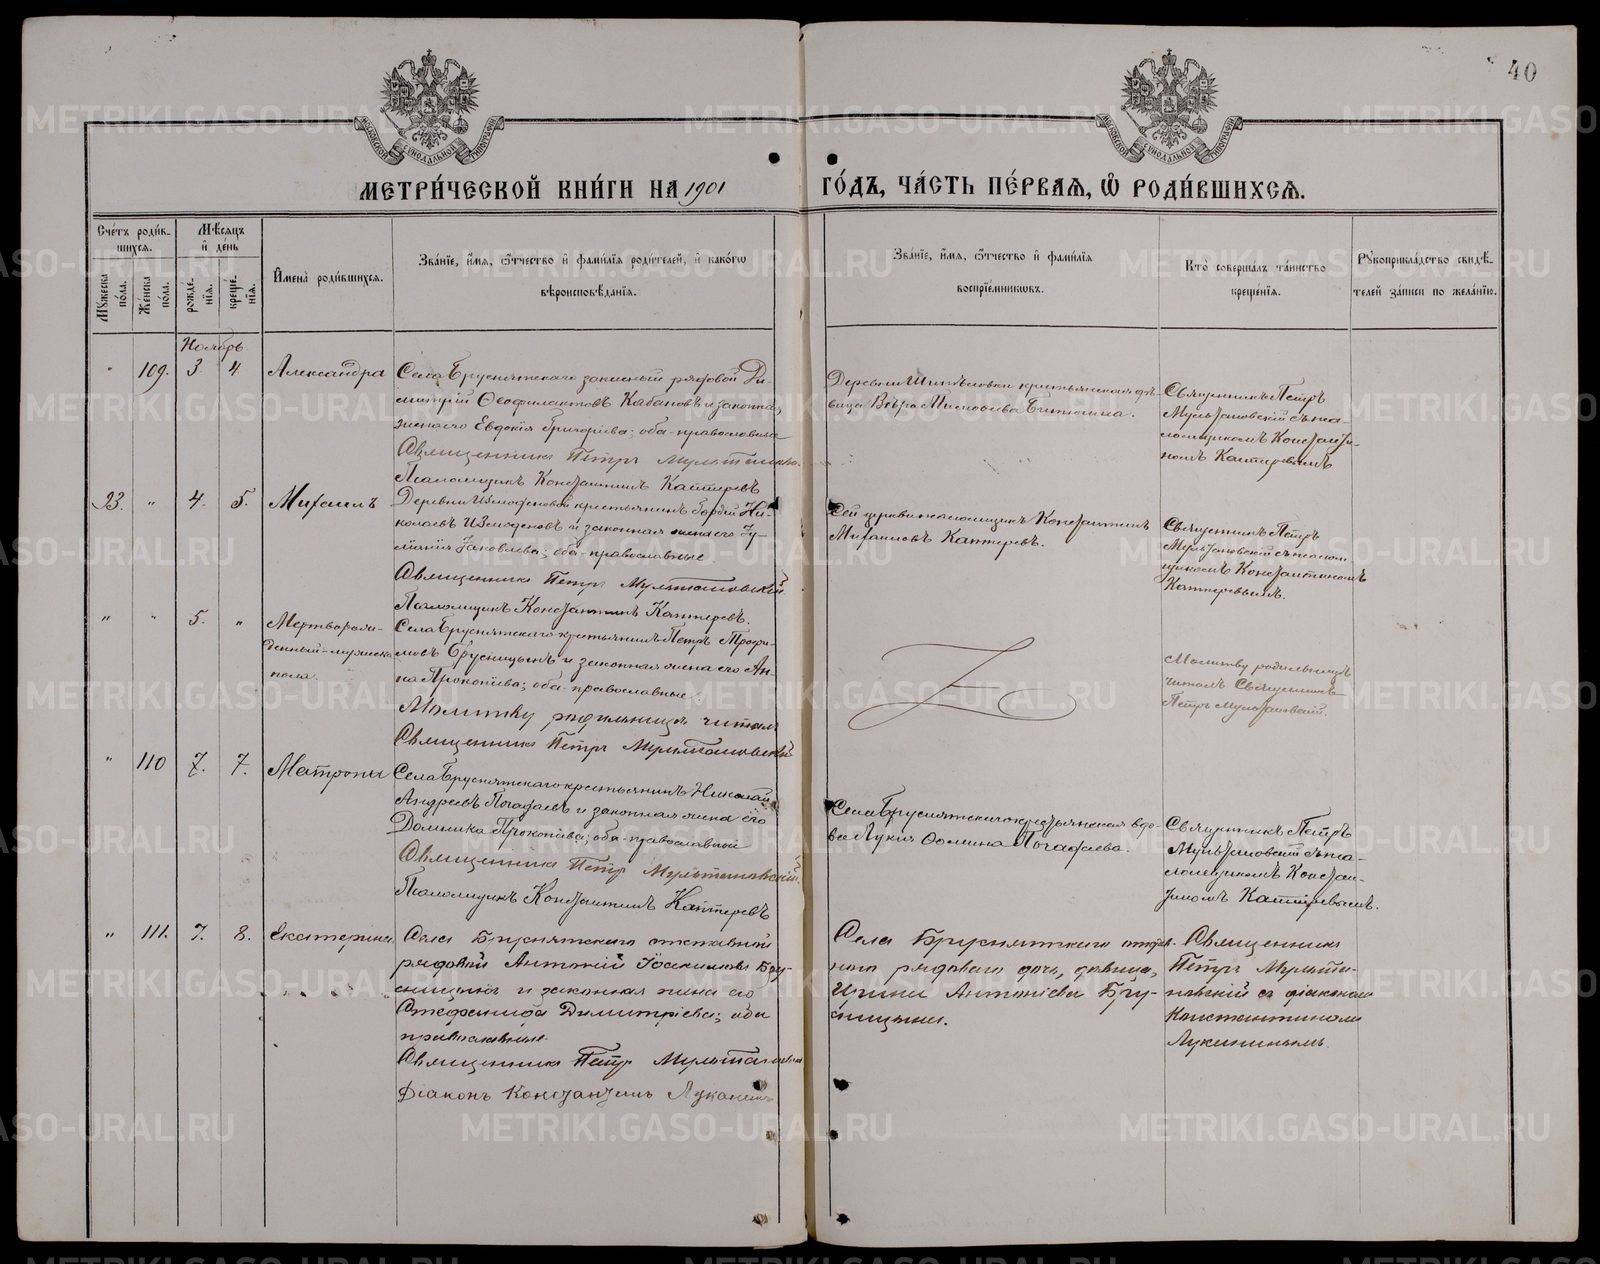 40
МОСКОВСКОЙ СѴНОДАЛЬНОЙ ТИПОГРАФІИ
МОСКОВСКОЙ СѴНОДАЛЬНОЙ ТИПОГРАФІИ
МЕТРИ́ЧЕСКОЙ КНИ́ГИ НА 1901
ГО́ДЪ, ЧА́СТЬ ПЕ́РВАѦ, Ѽ РОДИ́ВШИХСѦ.
Сче́тъ роди́в-
шихсѧ.
Мꙋ́жеска по́ла.
Же́нска по́ла.
Мѣ́сѧцъ
и҆ де́нь
рожде́-
нїѧ.
креще́-
нїѧ.
И҆мена̀ роди́вшихсѧ.
Зва́нїе, и҆́мѧ, ѻ҆́тчество и҆ фамѝлїѧ роди́телей, и҆ како́гѡ
вѣроисповѣ́данїѧ.
Зва́нїе, и҆́мѧ, ѻ҆́тчество и҆ фамѝлїѧ
воспрїе́мникѡвъ.
Кто̀ соверша́лъ та́инство
креще́нїѧ.
Рꙋкоприкла́дство свидѣ́-
телей за́писи по жела́нїю.
Ноябрь
109. 3 4 Александра
Села Бруснятскаго запасный рядовой Ди-
митрій Ѳеофилактовъ Кабановъ и законная
жена его Евдокія Григоріева; оба православные
Священникъ Петръ Мультановскій
Псаломщикъ Константинъ Каптеревъ
крестьянская дѣ-
вица Вѣра
Священникъ Петръ
Мультановскій съ пса-
ломщикомъ Константи-
номъ Каптеревымъ
23. " 4. 5. Михаилъ
Деревни Измоденовой крестьянинъ Гордій Ни-
колаевъ Измоденовъ и законная жена его Іу-
ліанія Іаковлева; оба православные.
Священникъ Петръ Мультановскій
Псаломщикъ Константинъ Каптеревъ.
Сей церкви псаломщикъ Константинъ
Михаиловъ Каптеревъ.
Священникъ Петръ
Мультановскій съ псалом-
щикомъ Константиномъ
Каптеревымъ.
" " 5. " Мертворож-
денный мужеска
пола.
Села Бруснятскаго крестьянинъ Петръ Трофи-
мовъ Брусницынъ и законная жена его Ан-
на Прокопіева; оба православные.
Молитву родильницѣ читалъ
Священникъ Петръ Мультановскій
Молитву родильницѣ
читалъ Священникъ
Петръ Мультановскій.
" 110 7. 7. Матрона
Села Бруснятскаго крестьянинъ Николай
Андреевъ Погадаевъ и законная жена его
Домника Прокопіева; оба православные
Священникъ Петръ Мультановскій.
Псаломщикъ Константинъ Каптеревъ
Села Бруснятскаго крестьянская вдо-
ва Лукія Ѳомина Погадаева.
Священникъ Петръ
Мультановскій съ пса-
ломщикомъ Констан-
тиномъ Каптеревымъ.
" 111. 7. 8. Екатерина
Села Бруснятскаго отставной
рядовой Антоній Іоакимовъ Бру-
сницынъ и законная жена его
Стефанида Димитріева; оба
православные.
Священникъ Петръ Мультановскій
Діаконъ Константинъ Лукининъ
Села Бруснятскаго отстав-
ного рядового дочь, девица,
Антоніева Бру-
сницына.
Священникъ
Петръ Мульта-
новскій съ діакономъ
Константиномъ
Лукининымъ.
METRIKI.GASO-URAL.RU